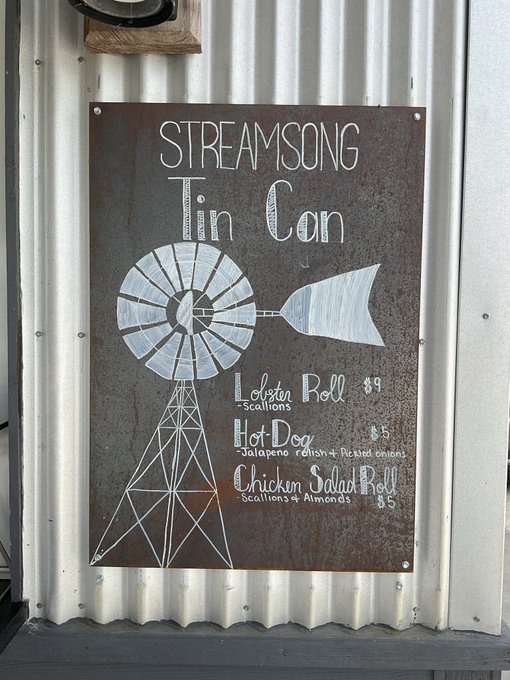 STREAMSONG
Tin Can
Lobster Roll $9
-Scallions
Hot-Dog $5
-Jalapeno relish & Pickled onions
Chicken Salad Roll
-Scallions & Almonds $5